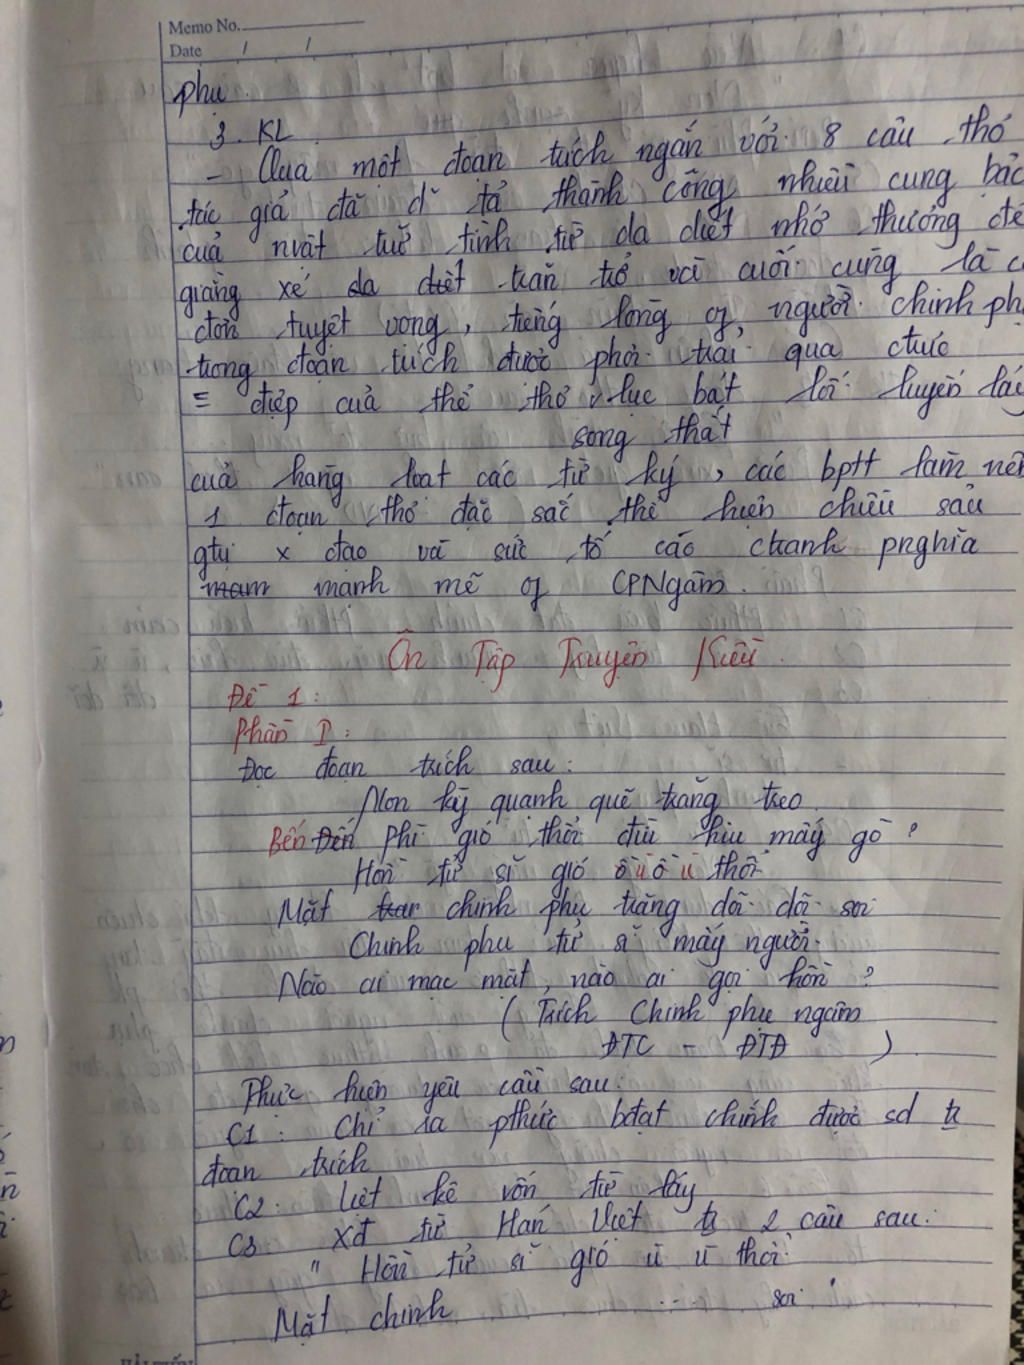 Memo No.
Date / /
phụ
3. KL
- Qua một đoạn trích ngắn với 8 câu thơ
tác giả đã tả thành công nhiều cung bậc
của nvật trữ tình từ da diết nhớ thương đến
giằng xé da diết trăn trở và cuối cùng là c
đơn tuyệt vọng, tiếng lòng of người chinh phụ
trong đoạn trích được phơi trải qua chức
điệp của thể thơ lục bát lối luyến láy
song thất
của hàng loạt các từ ký, các bptt làm nên
1 đoạn thơ đặc sắc thể hiện chiều sâu
gtrị x đạo và sức tố cáo ctranh pnghĩa
mạnh mẽ of CPNgâm.
Ôn Tập Truyện Kiều.
Đề 1:
Phần I:
Đọc đoạn trích sau:
Non kỳ quạnh quẽ trăng treo
Bến Đến Phì gió thổi đìu hiu mấy gò?
Hồn tử sĩ gió ù ù thổi
Mặt chinh phụ trăng dõi dõi soi
Chinh phu tử sĩ mấy người
Nào ai mạc mặt, nào ai gọi hồn?
( Trích Chinh phụ ngâm
ĐTC - ĐTĐ )
Thực hiện yêu cầu sau:
C1: Chỉ ra pthức bđạt chính được sd tr
đoạn trích
C2: Liệt kê vốn từ láy
C3 Xđ từ Hán Việt tr 2 câu sau:
" Hồn tử sĩ gió ù ù thổi
Mặt chinh ... soi "